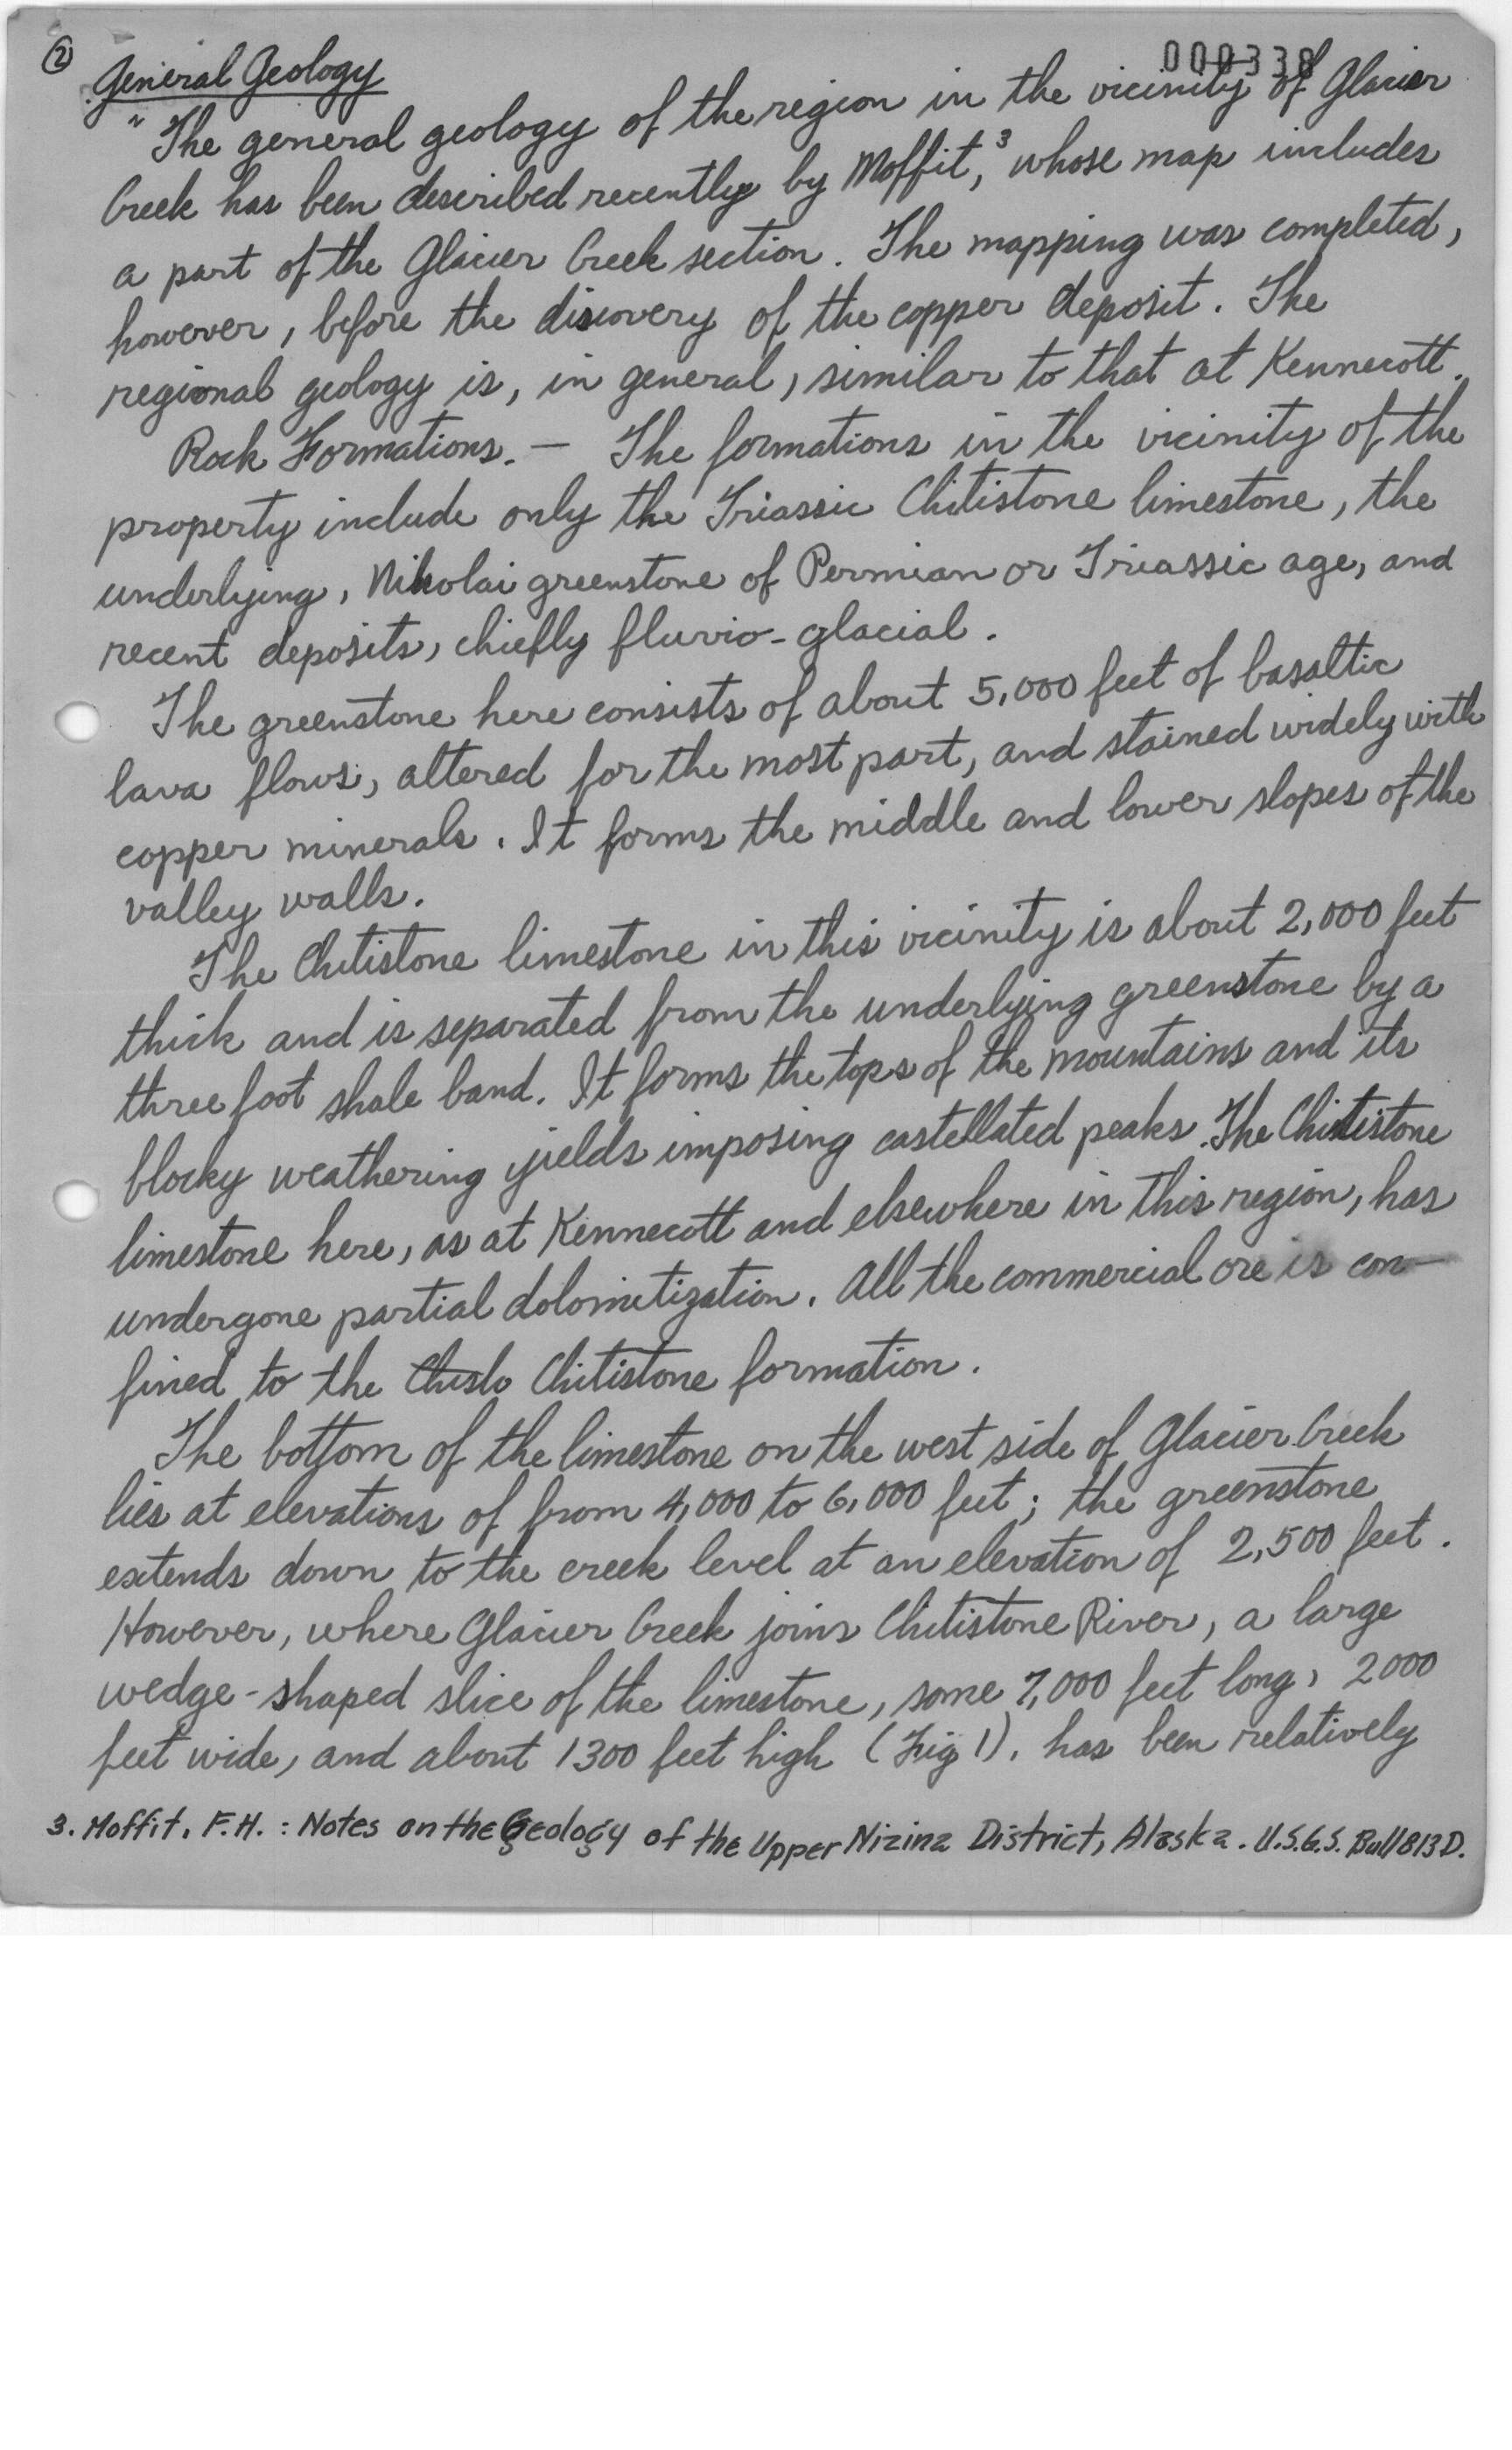 ②
000338
General Geology
"The general geology of the region in the vicinity of Glacier
Creek has been described recently by Moffit,³ whose map includes
a part of the Glacier Creek section. The mapping was completed,
however, before the discovery of the copper deposit. The
regional geology is, in general, similar to that at Kennecott.
Rock Formations. — The formations in the vicinity of the
property include only the Triassic Chitistone limestone, the
underlying, Nikolai greenstone of Permian or Triassic age, and
recent deposits, chiefly fluvio-glacial.
The greenstone here consists of about 5,000 feet of basaltic
lava flows, altered for the most part, and stained widely with
copper minerals. It forms the middle and lower slopes of the
valley walls.
The Chitistone limestone in this vicinity is about 2,000 feet
thick and is separated from the underlying greenstone by a
three foot shale band. It forms the tops of the mountains and its
blocky weathering yields imposing castellated peaks. The Chitistone
limestone here, as at Kennecott and elsewhere in this region, has
undergone partial dolomitization. All the commercial ore is con-
fined to the Chitistone formation.
The bottom of the limestone on the west side of Glacier Creek
lies at elevations of from 4,000 to 6,000 feet; the greenstone
extends down to the creek level at an elevation of 2,500 feet.
However, where Glacier Creek joins Chitistone River, a large
wedge-shaped slice of the limestone, some 7,000 feet long, 2000
feet wide, and about 1300 feet high (Fig 1), has been relatively
3. Moffit, F.H.: Notes on the Geology of the Upper Nizina District, Alaska. U.S.G.S. Bull 813D.